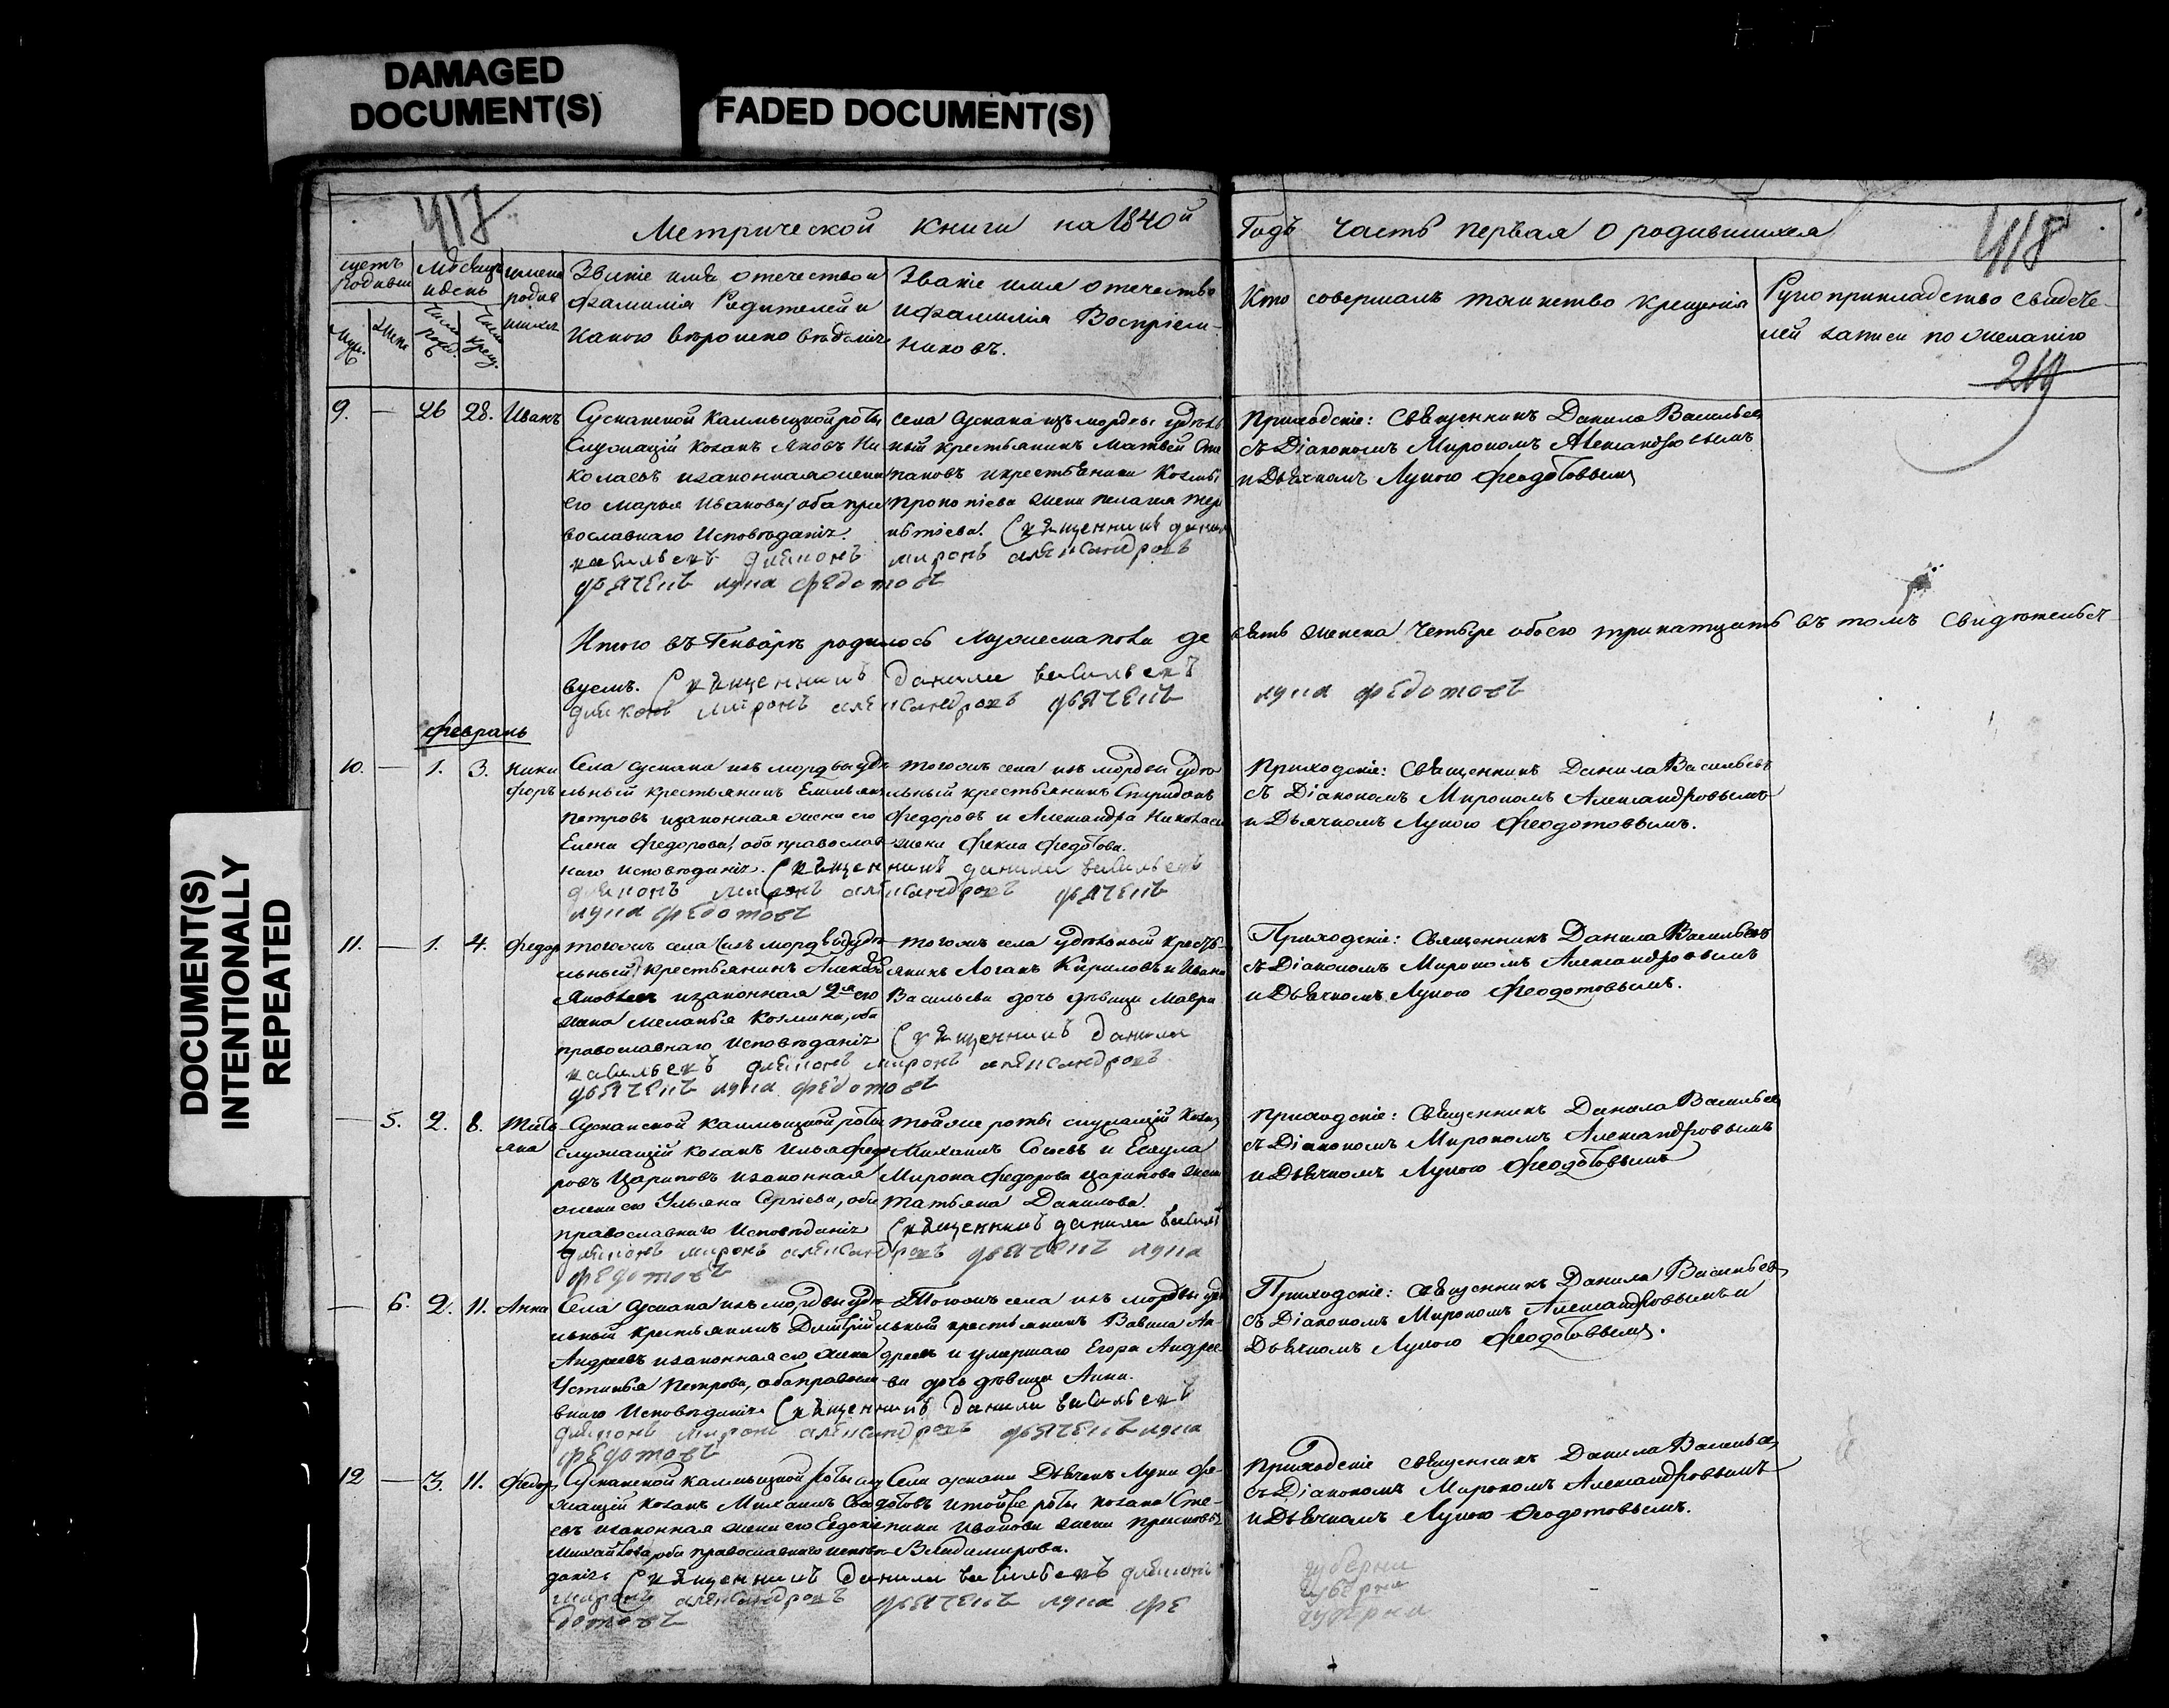 DAMAGED
DOCUMENT(S)
FADED DOCUMENT(S)
DOCUMENT(S)
INTENTIONALLY
REPEATED
417
Метрической книги на 1840й
Годъ часть первая о родившихся
418
щетъ родивш
Месяцъ и день
имена родив шихся
Званіе имя отечество и
фамилія Родителей и
какого вероисповеданія
Званіе имя отечество
и фамилія Воспріем-
никовъ.
Кто совершалъ таинство крещенія
Рукоприкладство свидете-
лей записи по желанію
219
Муж.
Женс
Число рожд.
Число крещ.
9. — 26 28. Иванъ
Сусканской Калмыцкой роты
Служащій козакъ Яковъ Ни
колаевъ и законная жена
его Марья Иванова, оба пра
вославнаго Исповѣданія.
села Сускана изъ мордвы удѣль
ный крестьянинъ Матвей Сте
пановъ и крестьянина Козмы
Прокопіева жена Пелагия Тер
ентіева. Священникъ данила
васильевъ диаконъ миронъ александровъ
дьячекъ лука федотовъ
Приходскіе: Священникъ Данила Васильев
съ Діакономъ Мирономъ Александровымъ
и Дьячкомъ Лукою Феодотовымъ
Итого въ Генварѣ родилось мужеска пола де
вять женска четыре обоего тринатцать въ томъ свидѣтельст
вуемъ. Священникъ данила васильевъ
диаконъ миронъ александровъ дьячекъ
лука федотовъ
февраль
10. — 1. 3. Ники
форъ
Села Сускана изъ мордвы удѣ
льный крестьянинъ Емельянъ
Петровъ и законная жена его
Елена Федорова, оба православ
наго исповѣданія. Священникъ данила васильевъ
диаконъ миронъ александровъ дьячекъ
лука федотовъ
тогожъ села изъ мордвы удѣ
льный крестьянинъ Спиридонъ
Федоровъ и Александра Николаева
жена Фекла Федотова.
Приходскіе: Священникъ Данила Васильевъ
съ Діакономъ Мирономъ Александровымъ
и Дьячкомъ Лукою Феодотовымъ.
11. — 1. 4. Федор
тогожъ села изъ мордвы удѣ
льный крестьянинъ Алексей
Яковлевъ и законная 2я его
жена Меланья Козмина, оба
православнаго исповѣданія
тогожъ села удѣльной кресть-
янинъ Логанъ Кириловъ и Ивана
Васильева дочь дѣвица Мавра
Священникъ данила
васильевъ диаконъ миронъ александровъ
дьячекъ лука федотовъ
Приходскіе: Священникъ Данила Васильевъ
съ Діакономъ Мирономъ Александровымъ
и Дьячкомъ Лукою Феодотовымъ.
— 5. 2. 8. Татья
яна
Сусканской Калмыцкой роты
служащій козакъ Илья Федо
ровъ Царицовъ и законная
жена его Ульяна Сергіева, оба
православнаго исповѣданія
той же роты служащій козакъ
Михаилъ и Есаула
Мирона Федорова жена
Татьяна Данилова.
Священникъ данила васильев
диаконъ миронъ александровъ дьячекъ лука
федотовъ
Приходскіе: Священникъ Данила Васильев
съ Діакономъ Мирономъ Александровымъ
и Дьячкомъ Лукою Феодотовымъ
— 6. 2. 11. Анна
Села Сускана изъ мордвы удѣ
льный крестьянинъ Дмитрій
Андреевъ и законная его жена
Устинья Петрова, оба правосла
внаго Исповѣданія Священникъ данила васильевъ
диаконъ миронъ александровъ дьячекъ лука
федотовъ
Тогожъ села изъ мордвы удѣ
льный крестьянинъ Вавила Ан-
дреевъ и умершаго Егора Андрее
ва дочь дѣвица Анна.
Приходскіе: Священникъ Данила Васильев
съ Діакономъ Мирономъ Александровымъ и
Дьячкомъ Лукою Феодотовымъ.
12 — 3. 11. Федор
Сусканской калмыцкой роты слу
жащій козакъ Михаилъ
евъ и законная жена его Евдокія
Михайлова, оба православнаго исповѣ
данія
Села Сускана Дьячекъ Лука Фе-
дотовъ и той же роты козака Сте-
пана Иванова жена Прасковья
Владимирова.
Священникъ данила васильевъ диаконъ
миронъ александровъ дьячекъ лука фе
дотовъ
Приходскіе Священникъ Данила Васильев
съ Діакономъ Мирономъ Александровымъ
и Дьячкомъ Лукою Феодотовымъ.
губерни
губерни
губерни